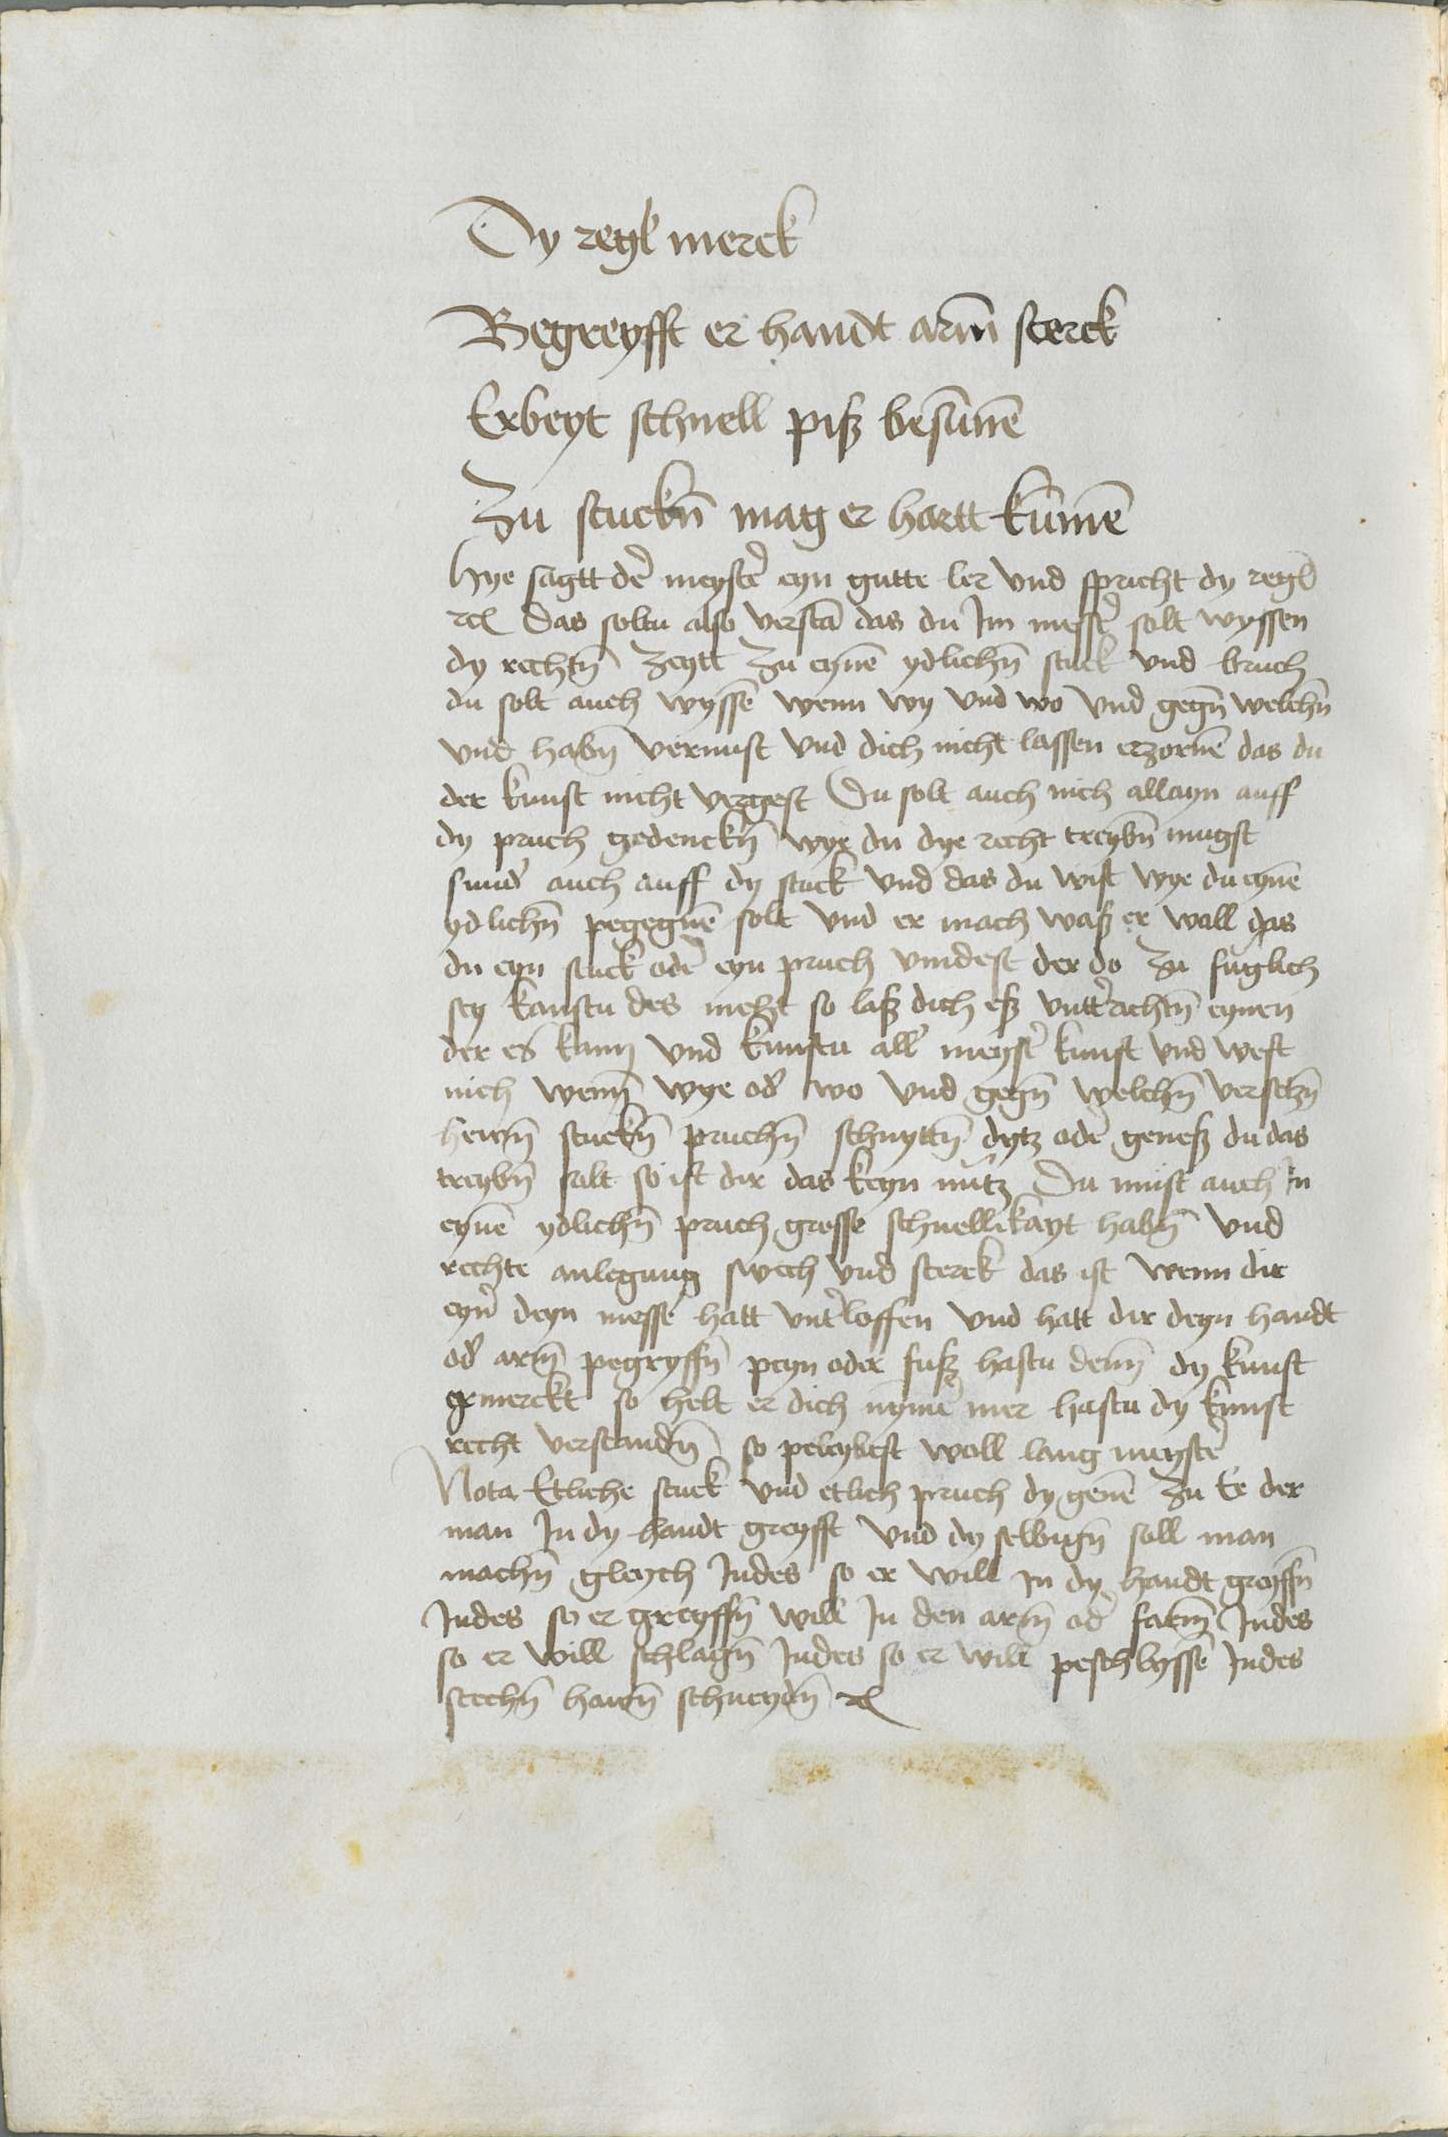 Dy regl merck
Begreyfft er handt arm̄ sterck
Erbeyt schnell piß besūnē
Zu stuckn̄ mag er hartt kūmē
Hye sagtt der meyster eyn gutte ler vnd spricht dy regl
rcꝭ Das soltu also verstā das du Im messer solt wyssen
dy rechtn̄ zeytt zu eynē ydlichn̄ stuck vnd bruch
du solt auch wyssē wenn wy vnd wo vnd gegn̄ welchn̄
vnd habn̄ vernuft vnd dich nicht lassen erzornē das du
der kunst nicht vergest Du solt auch nich allayn auff
dy pruch gedenckn̄ wye du dye recht treybn̄ mugst
sunder auch auff dy stuck vnd das du wist wye du eynē
ydlichn̄ pegegnē solt vnd er mach waß er woll das
du eyn stuck oder eyn pruch vindest der do zu fuglich
sey kanstu des nicht so laß dich eß vntterrichtn̄ eynen
der es kann vnd kunstu all meyster kunst vnd west
nich wenn̄ wye oder wo vnd gegn̄ welchn̄ versetzn̄
hewn̄ stuckn̄ pruchn̄ schnyttn̄ dytz oder geneß du das
treybn̄ salt so ist dir das keyn nutz Du must auch in
eynē ydlichn̄ pruch grosse schnellikayt habn̄ vnd
rechte anlegung swech vnd sterck das ist wenn dir
eyner deyn messer hatt vnterloffen vnd hatt dir deyn handt
oder arm̄ pegryffn̄ peyn oder fuß hastu denn̄ dy kunst
gemerckt so helt er dich nymer mer hastu dy kunst
recht verstandn̄ so peleybest woll lang meyster
Nota Etliche stuck vnd etlich pruch dy genē zu Ee der
man In dy handt greyfft vnd dy selbign̄ soll man
machn̄ gleych Indes so er will in dy handt greyffn̄
Indes so er greyffn̄ will In den arm̄ oder Indes
so er will schlagn̄ Indes so er will peschlyssē Indes
stechn̄ hawn̄ schneydn̄ rcꝭ